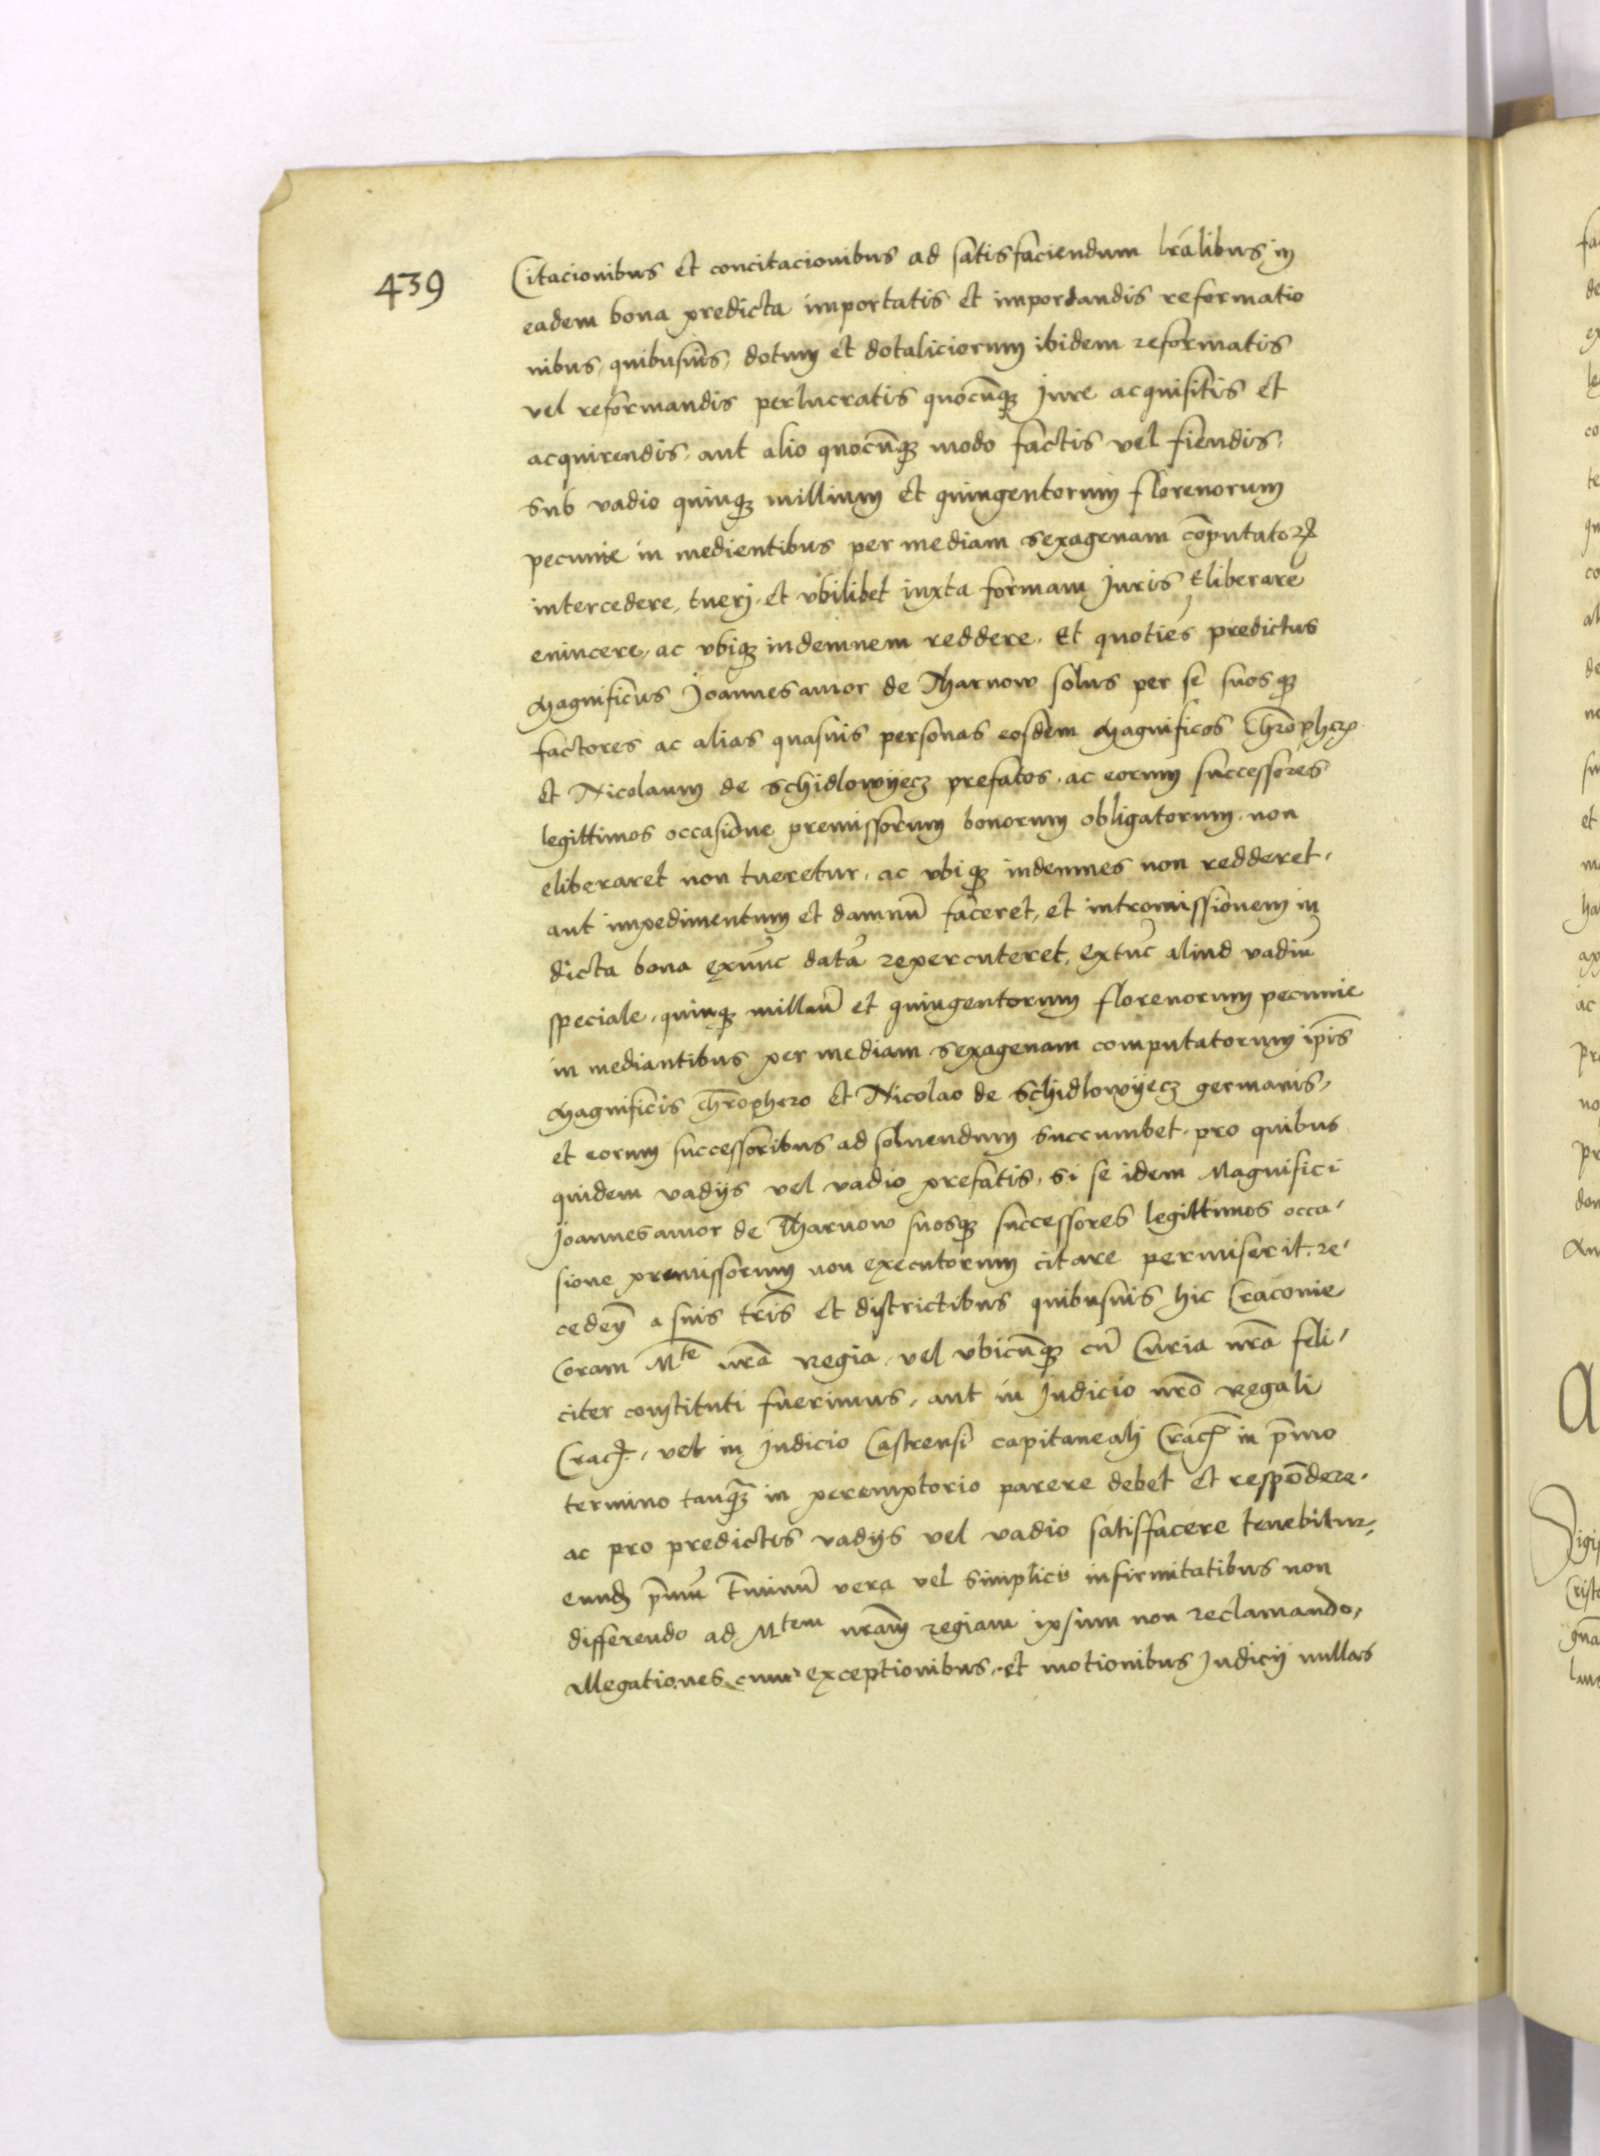 439
Citacionibus et concitacionibus ad satisfaciendum lr̃alibus in
eadem bona predicta importatis et importandis reformatio
nibus, quibusuis, dotum et dotaliciorum ibidem reformatis
vel reformandis perlucratis quocūq; iure acquisitis et
acquirendis. aut alio quocūq; modo factis vel fiendis.
Sub vadio quinq; millium et quingentorum florenorum
pecunie in medientibus per mediam sexagenam cōputatoꝝ
intercedere, tueri. et vbilibet iuxta formam Juris Eliberare
euincere, ac vbiq; indemnem reddere. Et quoties predictus
Magnificus Joannes amor de Tharnow solus per se suosq;
factores ac alias quasuis personas eosdem Magnificos Chr̃opherū
et Nicolaum de Schidlowyecz prefatos. ac eorum successores
legittimos occasione premissorum bonorum obligatorum. non
eliberaret non tueretur. ac vbiq; indemnes non redderet.
aut impedimentum et damnū faceret, et intromissionem in
dicta bona exnūc datā repercuteret, extūc aliud vadiū
speciale, quinq; milliū et quingentorum florenorum pecunie
in mediantibus per mediam sexagenam computatorum ip̄is
Magnificis Chr̃ophero et Nicolao de Schidlowyecz germanis,
et eorum successoribus ad soluendum succumbet. pro quibus
quidem vadijs vel vadio prefatis, si se idem Magnifici
Joannes amor de Tharnow suosq; successores legittimos occa,
sione premissorum non executorum citare permiserit. re,
ceden̄ a suis tr̃is et districtibus quibusuis hic Cracouie
Coram Mte nr̃a Regia, vel vbicūq; cū Curia nr̃a feli,
citer constituti fuerimus, aut in Judicio nr̃o Regali
Crac̄., vel in Judicio Castrensi capitaneali Crac̄ in p̄mo
termino tanq̄; in peremptorio parere debet et respōdere.
ac pro predictis vadijs vel vadio satisfacere tenebitur,
eund; p̄mū t̄minū vera vel simplici infirmitatibus non
differendo ad Mtem nr̃am regiam ipsum non reclamando,
allegationes cum exceptionibus, et motionibus Judicij nullas